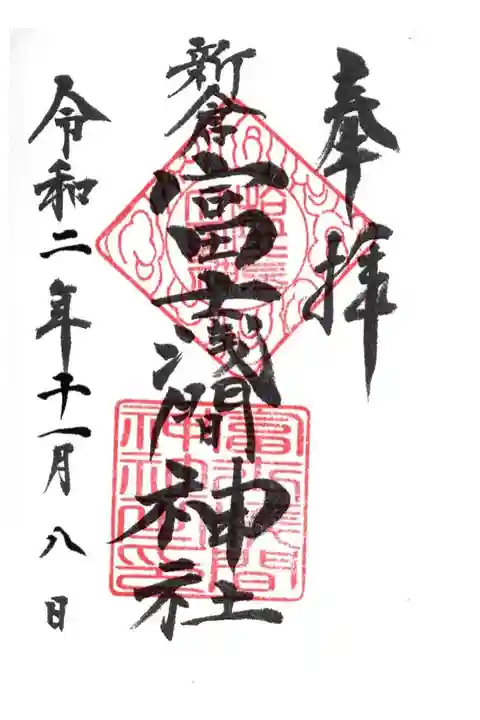 奉拝
新倉富士浅間神社
令和二年十一月八日